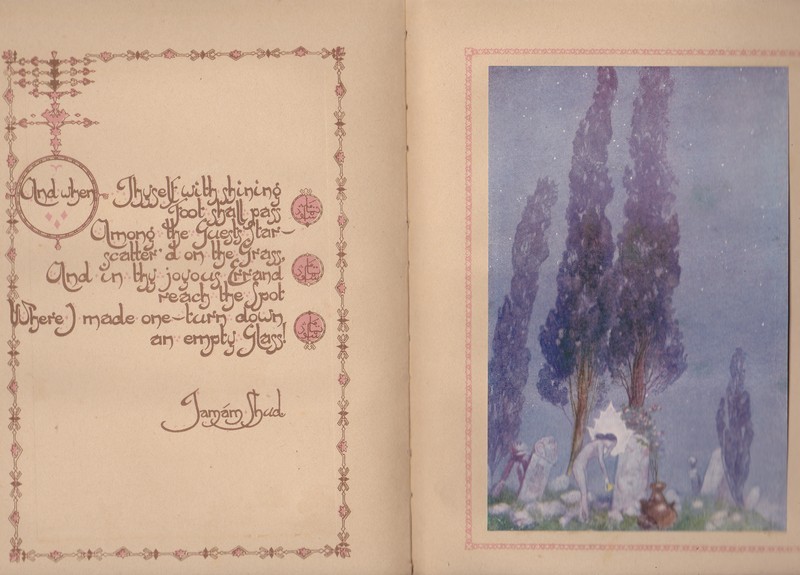 And when Thyself with shining
Foot shall pass
Among the Guests Star-
scatter'd on the Grass,
And in thy joyous Errand
reach the Spot
Where I made one—turn down
an empty Glass!
Tamám Shud.